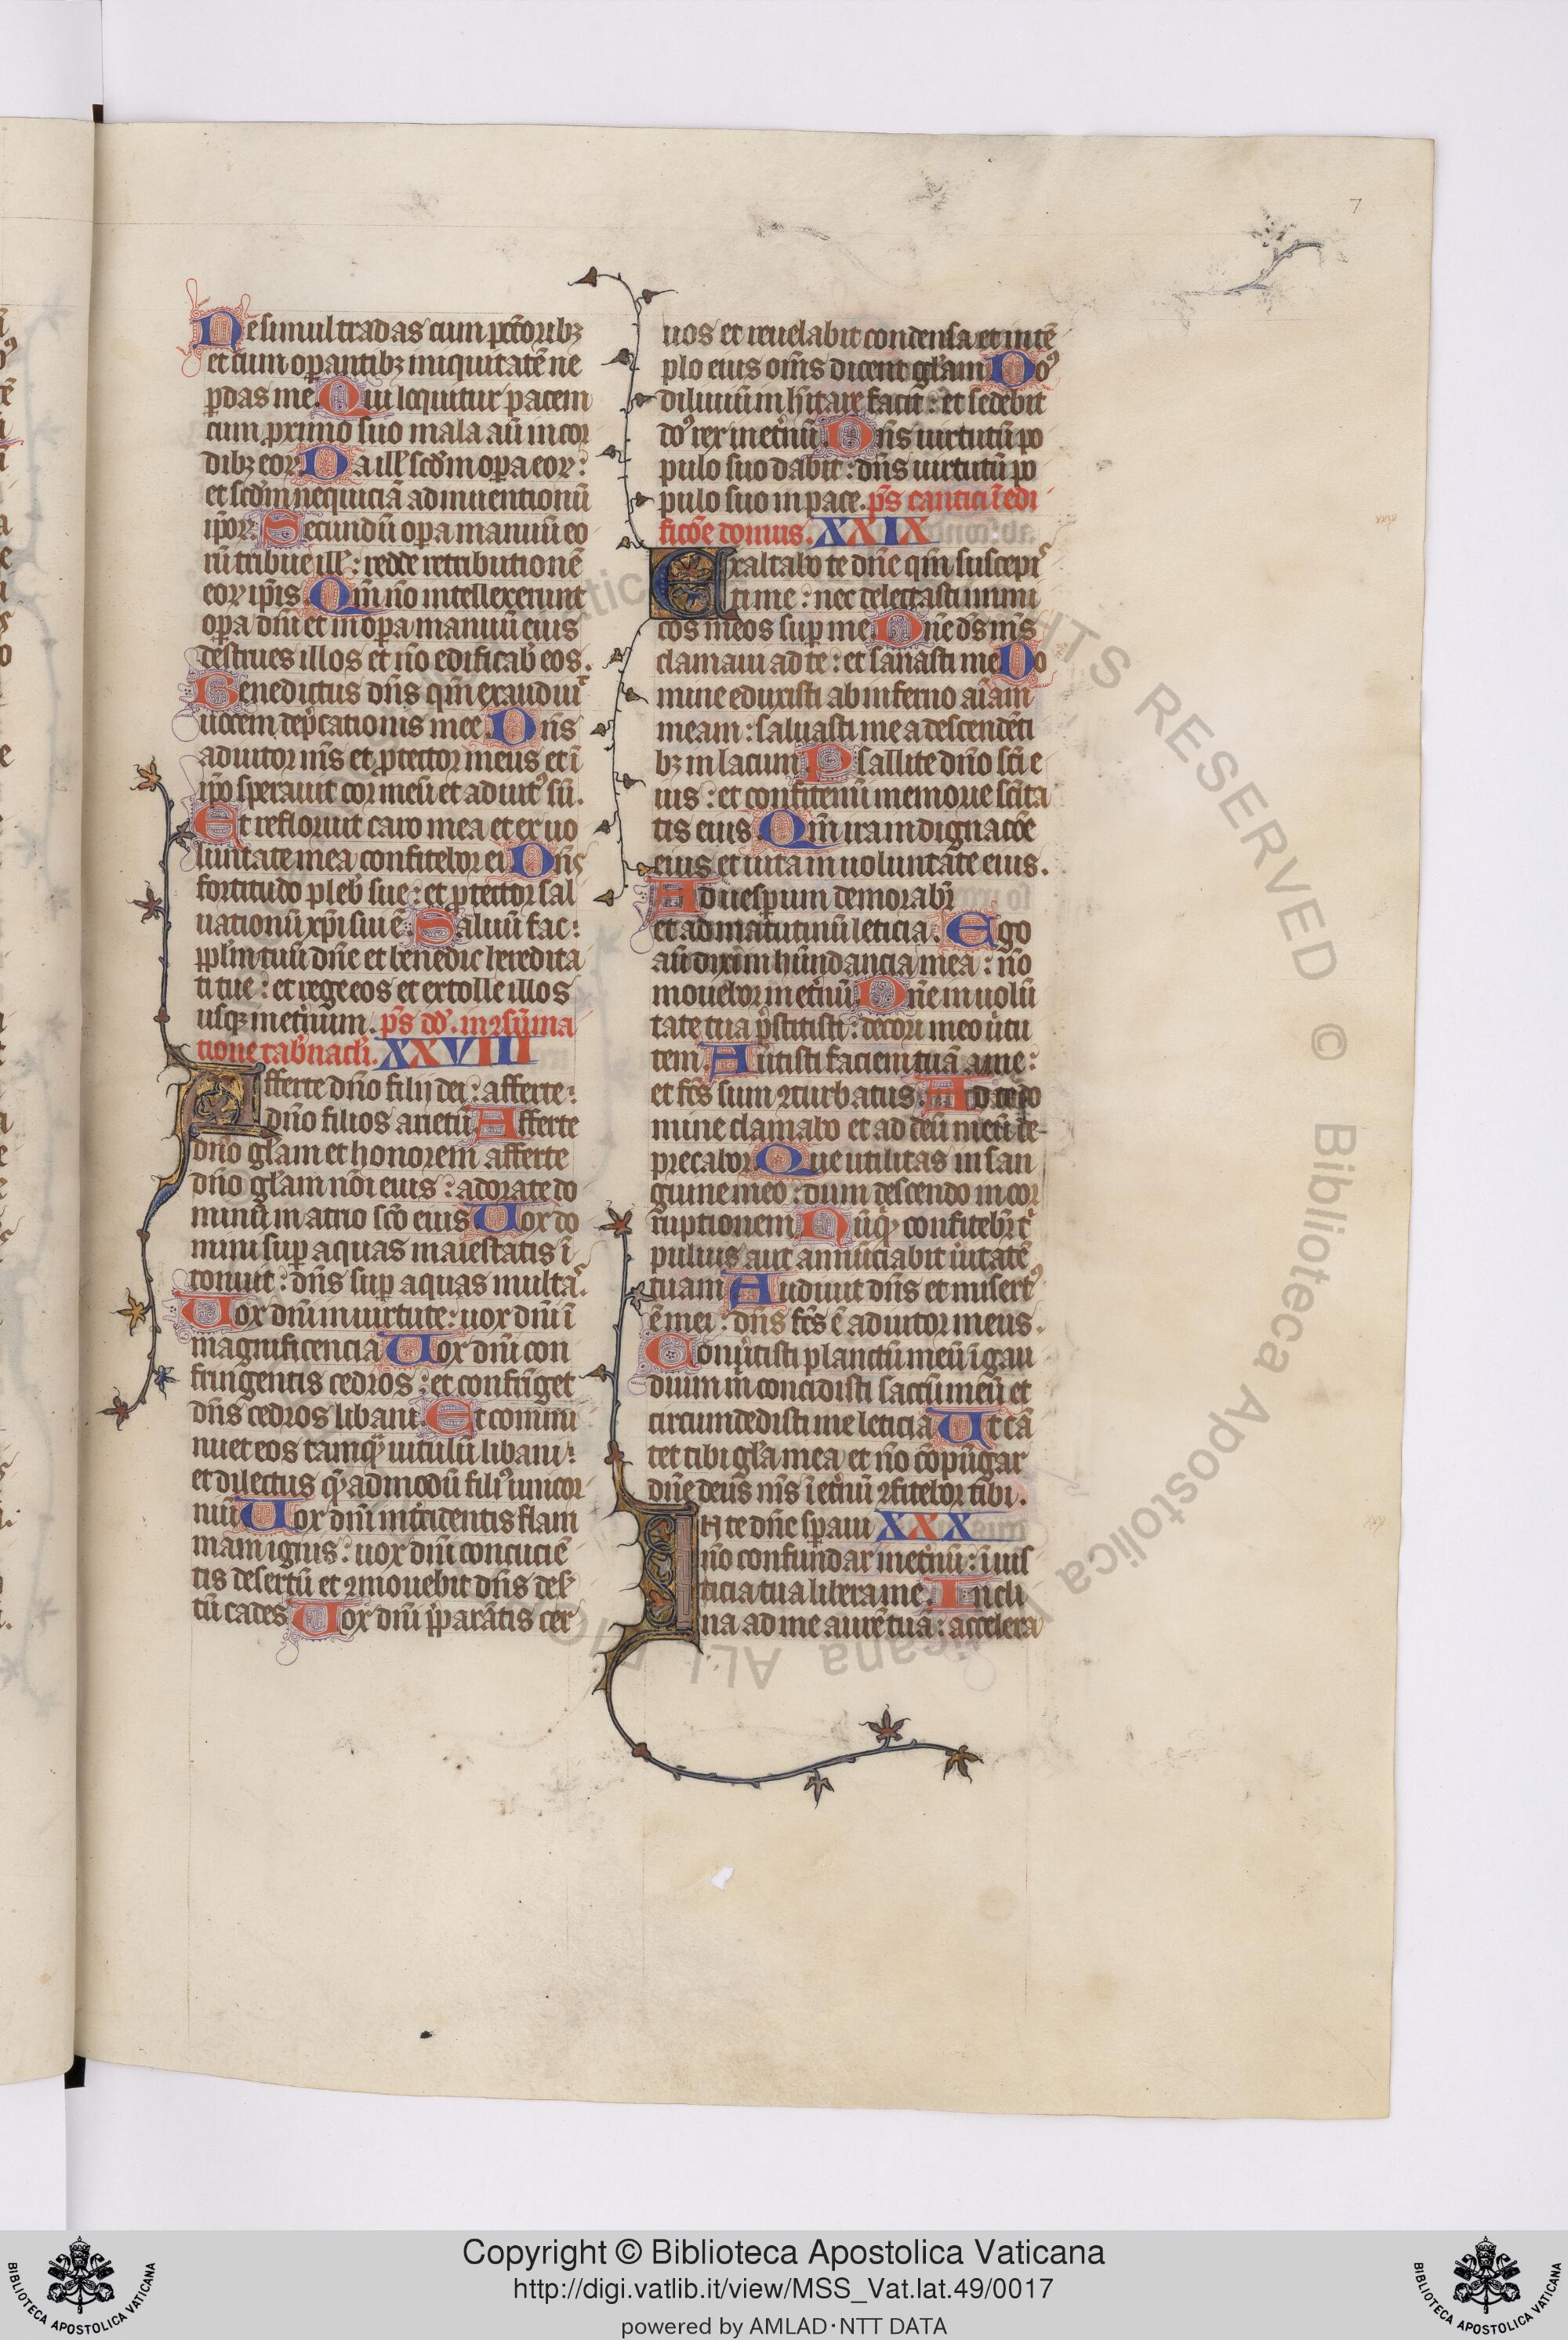 7
Ne simul tradas cum pctoribꝫ
et cum oꝑantibꝫ iniquitatē ne
ꝑdas me. Qui locuntur pacem
cum ꝓximo suo mala aū in cor
dibꝫ eoꝝ Da ill̄ scdm̄ oꝑa eoꝝ:
et scdm̄ nequiciā adinuentionū
ip̄oꝝ. Secundū oꝑa manuū eo
rū tribue ill̄: redde retributionē
eoꝝ ip̄is. Qm̄ nō intellexerunt
oꝑa dn̄i et in oꝑa manuū eius
destrues illos et nō edificab̄ eos.
Benedictus dn̄s qm̄ exaudiuit
uocem dep̄cationis mee. Dn̄s
adiutor m̄s et ꝓtector meus et ī
ip̄o sperauit cor meū et adiutꝰ sū.
Et refloruit caro mea et ex uo
luntate mea confitebor ei Dn̄s
fortitudo pleb̄ sue: et ꝓtector sal
uationū xp̄i sui ē. Saluū fac:
ppl̄m tuū dn̄e et benedic heredita
ti tue: et rege eos et extolle illos
usqꝫ in et̄num. p̄s dd̄. in ꝯsūma
tione tab̄nacli. XXVIII
Afferte dn̄o filij dei: afferte:
dn̄o filios arietū Afferte
dn̄o gl̄am et honorem afferte
dn̄o gl̄am nōi eius: adorate do
minū in atrio sc̄o eius Uox do
mini suꝑ aquas maiestatis ī
tonuit: dn̄s suꝑ aquas multas.
Uox dn̄i in uirtute: uox dn̄i ī
magnificencia Uox dn̄i con
fringentis cedros: et confr̄nget
dn̄s cedros libani. Et commi
nuet eos tamqꝫ uitulū libani:
et dilectus qꝫadmodū filiꝰ unicor
niū Uox dn̄i int̄cidentis flam
mam ignis: uox dn̄i concuciē
tis desertū et ꝯmouebit dn̄s deser
tū cades Uox dn̄i p̄parātis cer
uos et reuelabit condensa et in tē
plo eius om̄s dicent gl̄am Doꝰ
diluuiū inh̄itare facit: et sedebit
dōꝰ rex in et̄nū. Dn̄s uirtutū po
pulo suo dabit: dn̄s uirtutū po
pulo suo in pace. p̄s cantici ī edi
ficōe domus. XXIX
Exaltabo te dn̄e qm̄ suscepis
ti me: nec delectasti inimi
cos meos suꝑ me Dn̄e ds̄ m̄s
clamaui ad te: et sanasti me Do
mine eduxisti ab inferno aīam
meam: saluasti me a descendēti
bꝫ in lacum Psallite dn̄o sc̄i e
ius: et confitemī memorie sc̄ita
tis eius Qm̄ ira in dignacōe
eius et uita in uoluntate eius.
Ad uesꝑum demorabit̄
et ad matutinū leticia. Ego
aū dixi in hūndancia mea: nō
mouebor in et̄nū. Dn̄e in uolū
tate tua p̄stitisti: decori meo ūtu
tem Au̇tisti faciem tuā a me:
et fc̄s sum ꝯturbatus. Ad te do
mine clamabo et ad deū meū de-
precabor Que utilitas in san
guine meo: dum descendo in cor
ruptionem Nūqꝫ confitebit̄ t
puluis aut annūciabit ūitatē
tuam Audiuit dn̄s et misertꝰ
ē mei: dn̄s fc̄s ē adiutor meus.
Conūtisti planctū meū ī gau
dium m̄ concidisti saccū meū et
circumdedisti me leticia Ut cā
tet tibi gl̄a mea et nō cōpūgar
dn̄e deus m̄s ī et̄nū ꝯfitebor tibi.
IN te dn̄e sꝑaui XXX
nō confundar in et̄nū: in ius
ticia tua libera me. Incli
na ad me aurē tuā: accelera
ALL RIGHTS RESERVED © Biblioteca Apostolica Vaticana
BIBLIOTECA APOSTOLICA VATICANA
Copyright © Biblioteca Apostolica Vaticana
http://digi.vatlib.it/view/MSS_Vat.lat.49/0017
powered by AMLAD·NTT DATA
BIBLIOTECA APOSTOLICA VATICANA